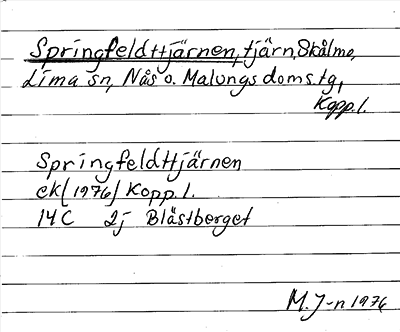 Springfeldttjärnen, tjärn, Skålmo,
Lima sn, Nås o. Malungs doms.tg,
Kopp.l.
Springfeldttjärnen
ek (1976) Kopp.l.
14C 2j Blästberget
M. J-n 1976